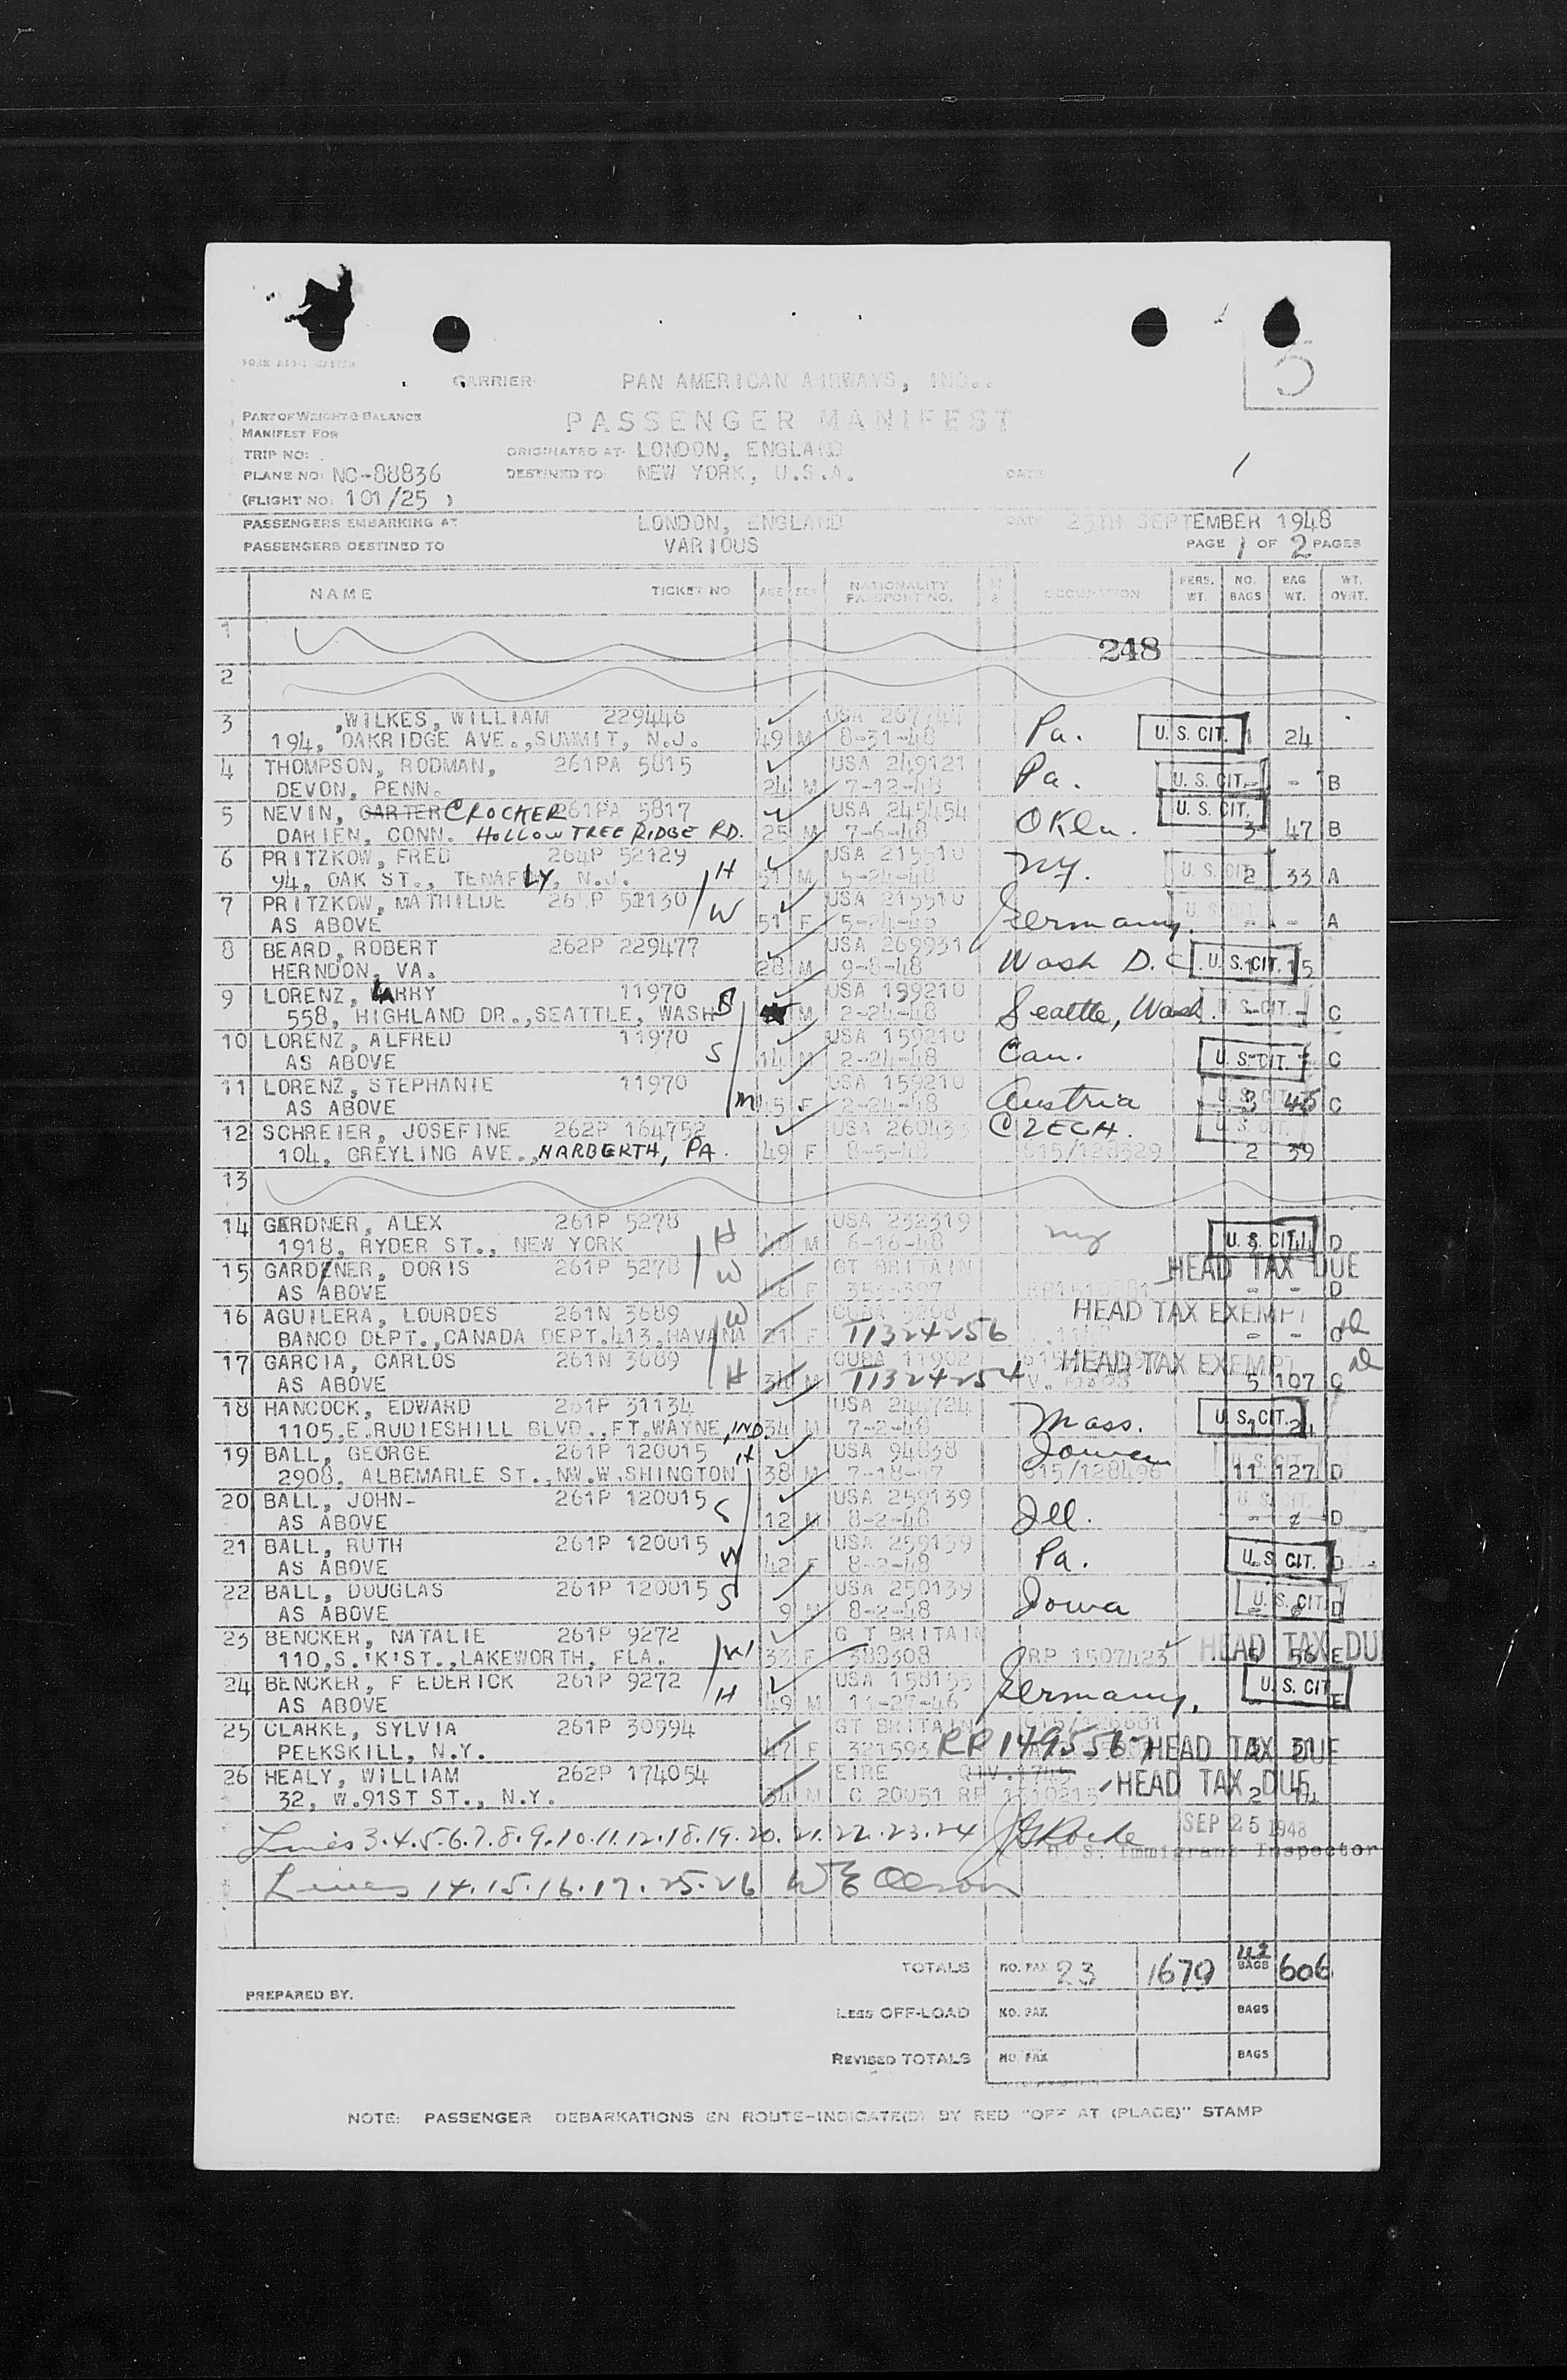 CARRIER PAN AMERICAN AIRWAYS, INC.
5
PART OF WEIGHT & BALANCE
MANIFEST FOR
PASSENGER MANIFEST
TRIP NO: ORIGINATED AT: LONDON, ENGLAND
PLANE NO: NC-88836 DESTINED TO: NEW YORK, U.S.A. DATE
(FLIGHT NO: 101/25 )
PASSENGERS EMBARKING AT LONDON, ENGLAND DATE 25TH SEPTEMBER 1948
PASSENGERS DESTINED TO VARIOUS PAGE 1 OF 2 PAGES
NAME TICKET NO AGE SEX NATIONALITY PASSPORT NO. OCCUPATION PERS. WT. NO. BAGS BAG WT. WT. OVHT.
1 248
2
3 WILKES, WILLIAM 229446 USA Pa. U. S. CIT. 1 24
194, OAKRIDGE AVE., SUMMIT, N.J. 49 M 8-31-48
4 THOMPSON, RODMAN, 261PA 5815 USA 249121 Pa. U. S. CIT. - B
DEVON, PENN. 24 M 7-12-48
5 NEVIN, CARTER CROCKER 261PA 5817 USA 245454 Okla. U. S. CIT. 3 47 B
DARIEN, CONN. HOLLOW TREE RIDGE RD. 25 M 7-6-48
6 PRITZKOW, FRED 264P 52129 USA 215510 NY. U. S. CIT. 2 33 A
94, OAK ST., TENAFLY, N.J. H 51 M 5-24-48
7 PRITZKOW, MATHILDE 261P 52130 USA 215510 Germany. U. S. CIT. - - A
AS ABOVE W 51 F 5-24-48
8 BEARD, ROBERT 262P 229477 USA 269931 Wash D.C U. S. CIT. 1 15
HERNDON, VA. 28 M 9-8-48
9 LORENZ, LARRY 11970 USA 159210 Seattle, Wash. U. S. CIT. - C
558, HIGHLAND DR., SEATTLE, WASH B M 2-24-48
10 LORENZ, ALFRED 11970 USA 159210 Can. U. S. CIT. C
AS ABOVE S 14 M 2-24-48
11 LORENZ, STEPHANIE 11970 USA 159210 Austria U. S. CIT. 3 45 C
AS ABOVE M 45 F 2-24-48
12 SCHREIER, JOSEFINE 262P 164752 USA CZECH. U. S. CIT.
104, GREYLING AVE., NARBERTH, PA. 49 F 8-5-48 615/128329 2 39
13
14 GARDNER, ALEX 261P 5278 USA 232319 NY U. S. CIT. D
1918, RYDER ST., NEW YORK H M 6-16-48
15 GARDENER, DORIS 261P 5278 GT BRITAIN HEAD TAX DUE
AS ABOVE W F - - D
16 AGUILERA, LOURDES 261N 3689 W CUBA HEAD TAX EXEMPT
BANCO DEPT., CANADA DEPT.413, HAVANA 21 F T1324256 - - C
17 GARCIA, CARLOS 261N 3689 CUBA 11902 HEAD TAX EXEMPT
AS ABOVE H 34 M T1324254 5 107 C
18 HANCOCK, EDWARD 261P 31134 USA 244724 Mass. U. S. CIT.
1105, E.RUDIESHILL BLVD., FT.WAYNE, IND 34 M 7-2-48
19 BALL, GEORGE 261P 120015 H USA 94838 Iowa
2908, ALBEMARLE ST., NW.W.SHINGTON 38 M 7-18-47 615/128496 11 127 D
20 BALL, JOHN- 261P 120015 S USA 259139 Ill. U. S. CIT.
AS ABOVE 12 M 8-2-48 - D
21 BALL, RUTH 261P 120015 USA 259139 Pa. U. S. CIT. D
AS ABOVE W 42 F 8-2-48
22 BALL, DOUGLAS 261P 120015 S USA 250139 Iowa U. S. CIT. D
AS ABOVE 9 M 8-2-48
23 BENCKER, NATALIE 261P 9272 G T BRITAIN HEAD TAX DUE
110, S.'K'ST., LAKEWORTH, FLA. W 33 F 388308 RP 1507423 56 E
24 BENCKER, F EDERICK 261P 9272 USA 158155 Germany. U. S. CIT E
AS ABOVE H 49 M 11-27-46
25 CLARKE, SYLVIA 261P 30994 GT BRITAIN
PEEKSKILL, N.Y. 47 F 321593 RP 1495567 HEAD TAX DUE
26 HEALY, WILLIAM 262P 174054 EIRE QIV.1745 HEAD TAX DUE
32, W.91ST ST., N.Y. 34 M C 20051 RP 1510215 2
Lines 3.4.5.6.7.8.9.10.11.12.18.19.20.21.22.23.24 SEP 25 1948
U. S. Immigrant Inspector
Lines 14.15.16.17.25.26 W E Olson
TOTALS NO. PAX 23 1679 42 BAGS 606
PREPARED BY.
LESS OFF-LOAD NO. PAX BAGS
REVISED TOTALS NO. PAX BAGS
NOTE: PASSENGER DEBARKATIONS EN ROUTE-INDICATE(D) BY RED "OFF AT (PLACE)" STAMP